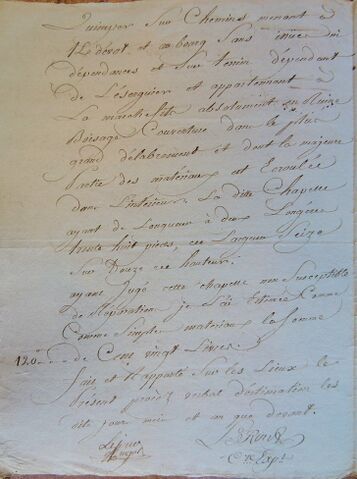 Quimper sur Chemins menant à
dévot et au bourg sans issue ni
dépendances et sur terrein dépendant
de Léserguier et appartenant à
La absolument en Ruine
Boisage Couverture dans le plus
grand délabrement et dont la majeure
Partie des matériaux est Ecroulée
dans L'intérieur. La ditte Chapelle
ayant de Longueur à deux Longére
trente huit pieces, en Largeur Seize
sur Douze en hauteur.
ayant Jugé cette chapelle non Susceptible
de Réparation je L'ai Estimée Comme
Comme Simple materiaux la somme
120 de Cent vingt Livres.
fait et Rapporté Sur les Lieux le
Présent procéz verbal d'estimation les
dits jour mois et an que devant.